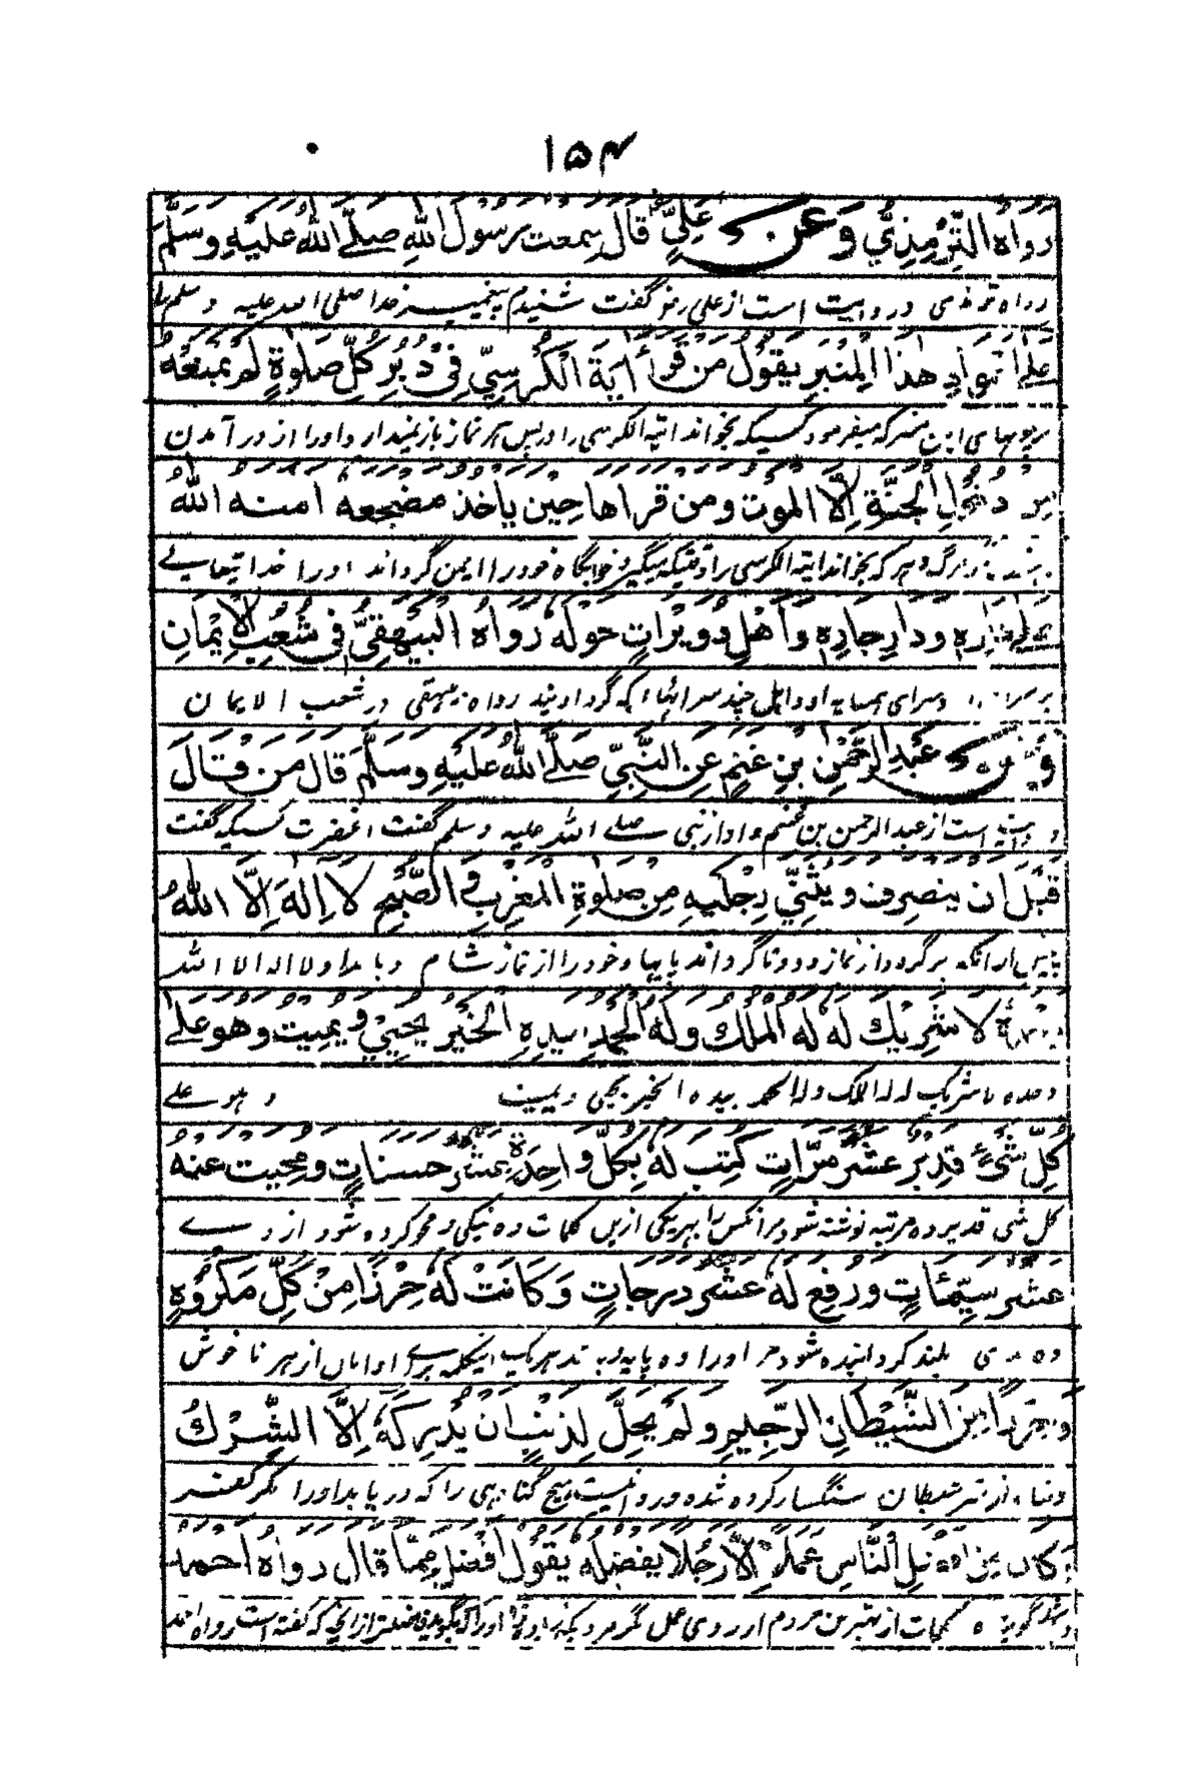 ۱۵۴
رواه الترمذي وعن علي قال سمعت رسول الله صلى الله عليه وسلم
رواه ترمذی و روایت است از علی رض گفت شنیدم پیغمبر خدا صلی الله علیه و سلم
على اعواد هذا المنبر يقول من قرأ آية الكرسي في دبر كل صلوة لم يمنعه
چوبهای این منبر که میفرمود کسیکه بخواند آیة الکرسی را در پس هر نماز باز نمیدارد او را از در آمدن
من دخول الجنة الا الموت ومن قراها حين ياخذ مضجعه امنه الله
مگر مرگ و هر که بخواند آیة الکرسی را وقتیکه میگیرد خوابگاه خود را ایمن گرداند او را خدا تیعالے
على داره ودار جاره واهل دويرات حوله رواه البيهقي في شعب الايمان
بر سرای او و سرای همسایه او و اهل چند سرائها که گرد اویند رواه بیهقی در شعب الایمان
وعن عبد الرحمن بن غنم عن النبي صلى الله عليه وسلم قال من قال
و است از عبد الرحمن بن غنم و او از نبی صلے الله علیه و سلم گفت آنحضرت کسیکه گفت
قبل ان ينصرف ويثني رجليه من صلوة المغرب والصبح لا اله الا الله
پیش از آنکه برگردد از نماز و دوتا گرداند پایها خود را از نماز شام و بامداد لا اله الا الله
وحده لا شريك له له الملك وله الحمد بيده الخير يحيي ويميت وهو على
وحده لا شریک له له الملک و له الحمد بیده الخیر یحیی و یمیت و هو علے
كل شيء قدير عشر مرات كتب له بكل واحدة عشر حسنات ومحيت عنه
کل شی قدیر ده مرتبه نوشته شود مر آنکس را بهر یکی ازین کلمات ده نیکی و محو کرده شود از وے
عشر سيئات ورفع له عشر درجات وكانت له حرزا من كل مكروه
ده بدی بلند گردانیده شود مر او را ده پایه و امان از هر ناخوش
وحرزا من الشيطان الرجيم ولم يحل لذنب ان يدركه الا الشرك
و پناه از شر شیطان سنگسار کرده شده و روا نیست هیچ گناهی را که دریابد او را مگر کفر
وكان من افضل الناس عملا الا رجلا يفضله يقول افضل مما قال رواه احمد
و باشد گوینده کلمات از بهترین مردم از روی عمل مگر مردیکه از آنچه که گفته است رواه احمد